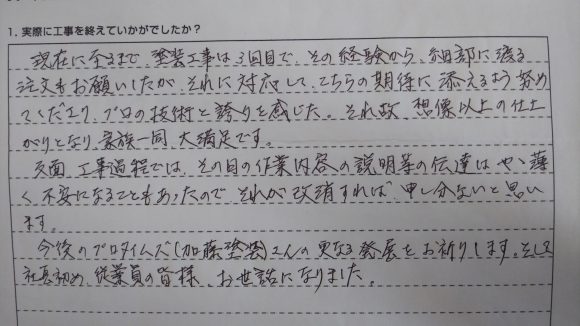 1. 実際に工事を終えていかがでしたか？
現在に至るまで、塗装工事は3回目で、その経験から、細部に渡る
注文もお願いしたが、それに対応して、こちらの期待に添えるよう努め
てくださり、プロの技術と誇りを感じた。それ故、想像以上の仕上
がりとなり、家族一同、大満足です。
反面、工事過程では、その日の作業内容の説明等の伝達はやゝ薄
く、不安になることもあったので、それが改消すれば、申し分ないと思い
ます。
今後のプロタイムズ(加藤塗装)さんの更なる発展をお祈りします。そして
社長初め、従業員の皆様、お世話になりました。